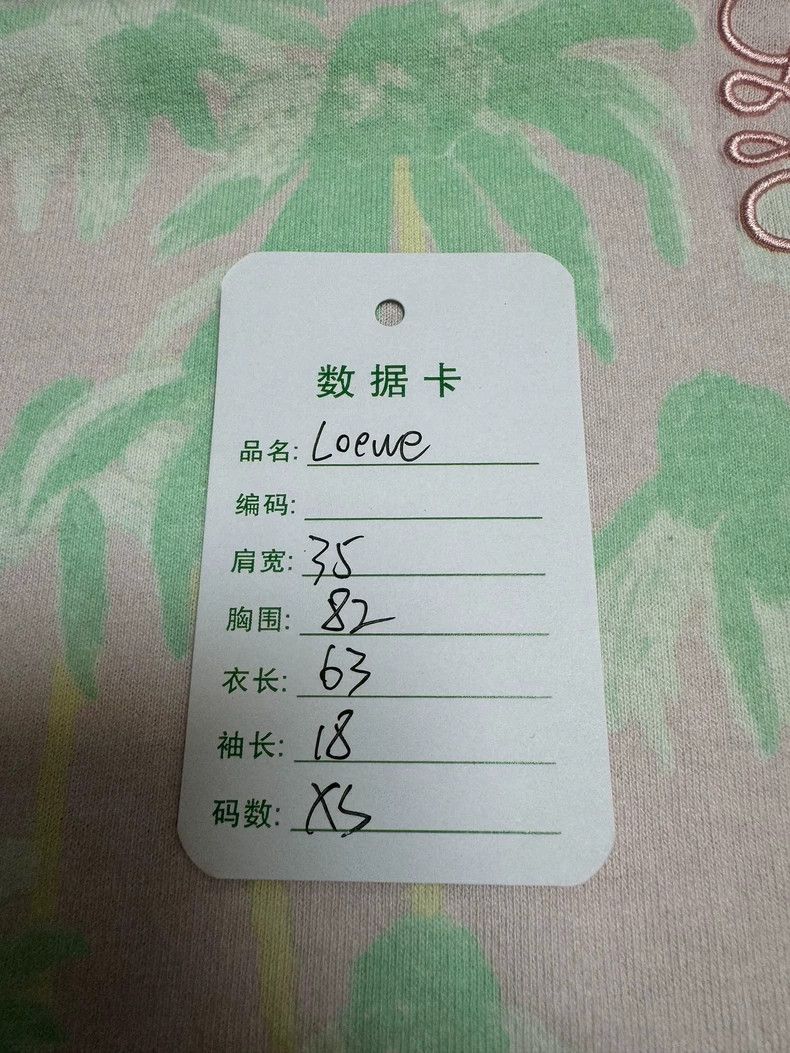 数据卡
品名: Loewe
编码:
肩宽: 35
胸围: 82
衣长: 63
袖长: 18
码数: XS